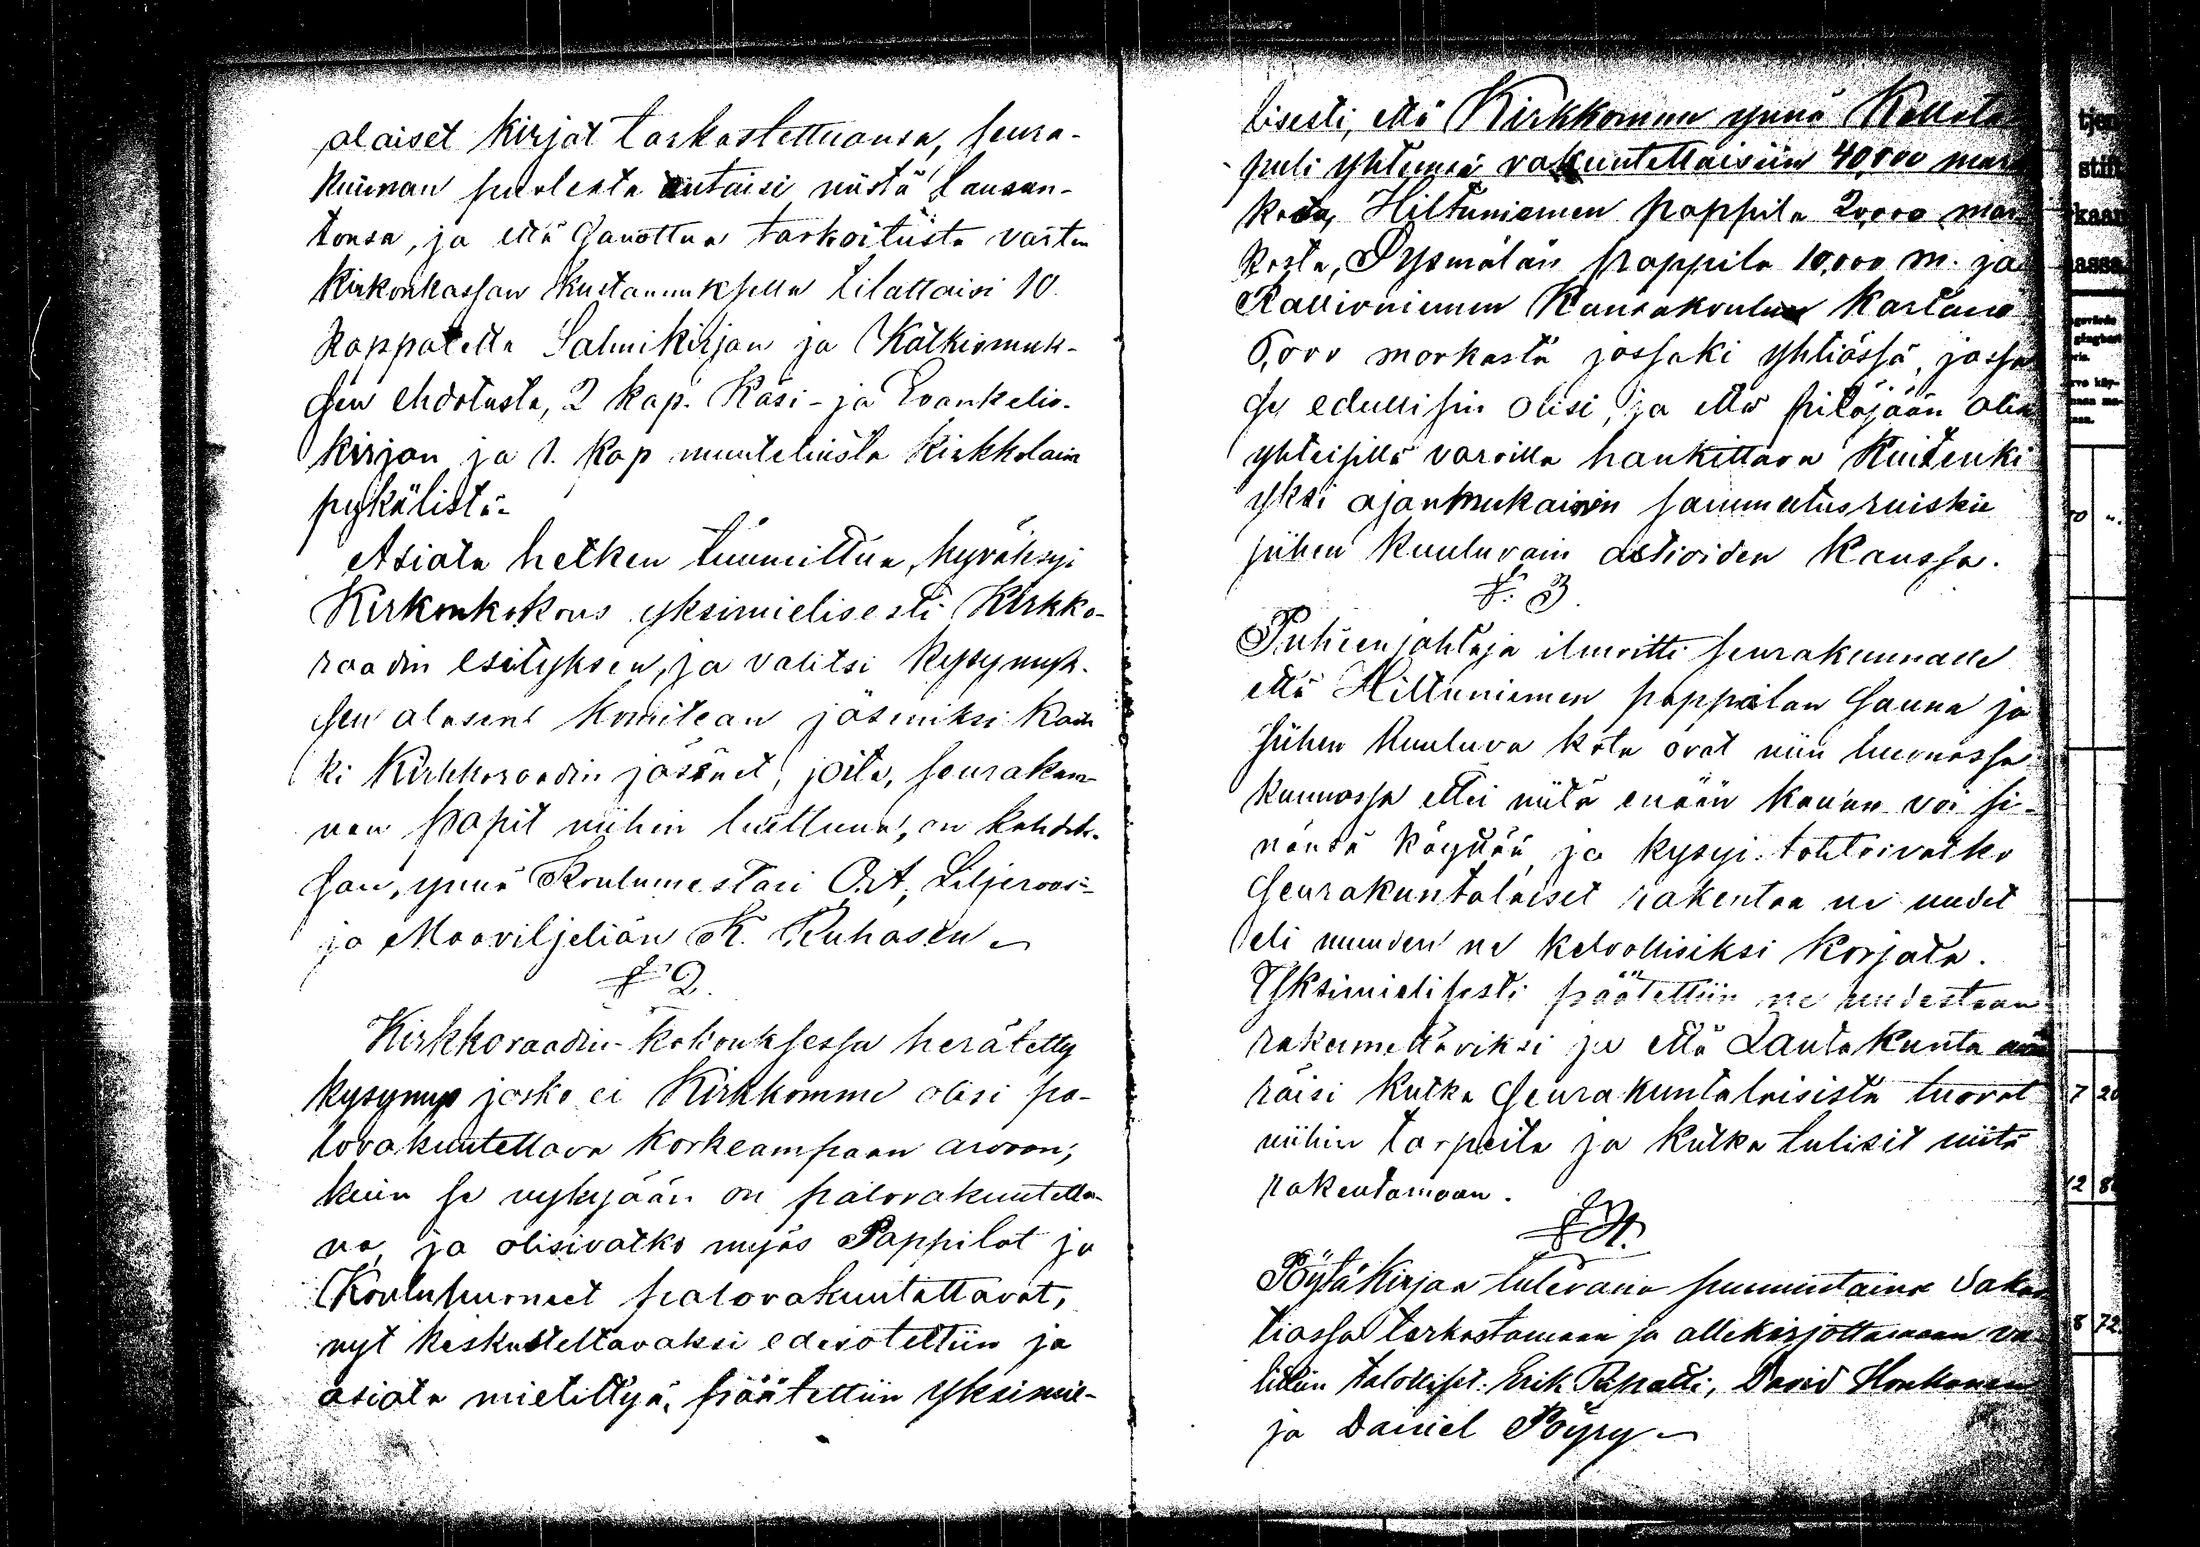 alaiset kirjat tarkastettuansa, seura-
kunnan puolesta antaisi niistä lausun-
tonsa, ja että sanottua tarkoitusta varten
kirkonkassan kustannuksella tilattaisi 10.
kappaletta Salmikirjan ja Katkismuk-
sen ehdotusta, 2 kap. Käsi- ja Evankelio-
kirjan ja 1. kap muutetuista kirkkolain
pykälistä.
Asiata hetken tuumittua, hyväksyi
Kirkonkokous yksimielisesti Kirkko-
raadin esityksen, ja valitsi kysymyk-
sen alasen komitean jäseniksi kaik
ki Kirkkoraadin jäsenet, joita, seurakun-
nan papit niihin luettuna, on kahdek-
san, ynnä Koulumestari O.A. Liljeroos
ja Maaviljeliän K. Ruhasen
§ 2.
Kirkkoraadin kokouksessa herätetty
kysymys josko ei Kirkkomme olisi pa-
lovakuutettava korkeampaan arvoon,
kuin se nykyjään on palovakuutettu-
na, ja olisivatko myös Pappilat ja
Kouluhuoneet palovakuutettavat,
nyt keskusteltavaksi edesotettiin ja
asiata mietittyä, päätettiin yksimie-
lisesti, että Kirkkomme ynnä Kellota
puli yhteensä vakuutettaisiin 40,000 mar
kasta, Hiltuniemen pappila 20,000 mar-
kasta, Sysmälän pappila 10,000 m. ja
Kallioniemen Kansakoulun kartano
6,000 markasta jossaki yhtiössä, jossa
se edullisin olisi, ja että pitäjään olis
yhteisillä varoilla hankittava kuitenki
yksi ajanmukainen sammutusruisku
siihen kuuluvain astioiden kanssa.
§. 3.
Puheenjohtaja ilmoitti seurakunnalle
että Hiltuniemen pappilan sauna ja
siihen kuuluva kota ovat niin huonossa
kunnossa ettei niitä enään kauan voi si-
nänsä käyttää ja kysyi: tahtoivatko
seurakuntalaiset rakentaa ne uudet
eli muuden ne kelvollisiksi korjata.
Yksimielisesti päätettiin ne uudestaan
rakennettaviksi ja että Lautakunta mää
räisi kutka seurakuntalaisista tuovat
niihin tarpeita ja kutka tulisit niitä
rakentamaan.
§ 4.
Pöytäkirjaa tulevana sunnuntaina Sakas
tiassa tarkastamaan ja allekirjottamaan va
littiin talolliset: Erik Papatti, David Honkanen
ja Daniel Pöyry